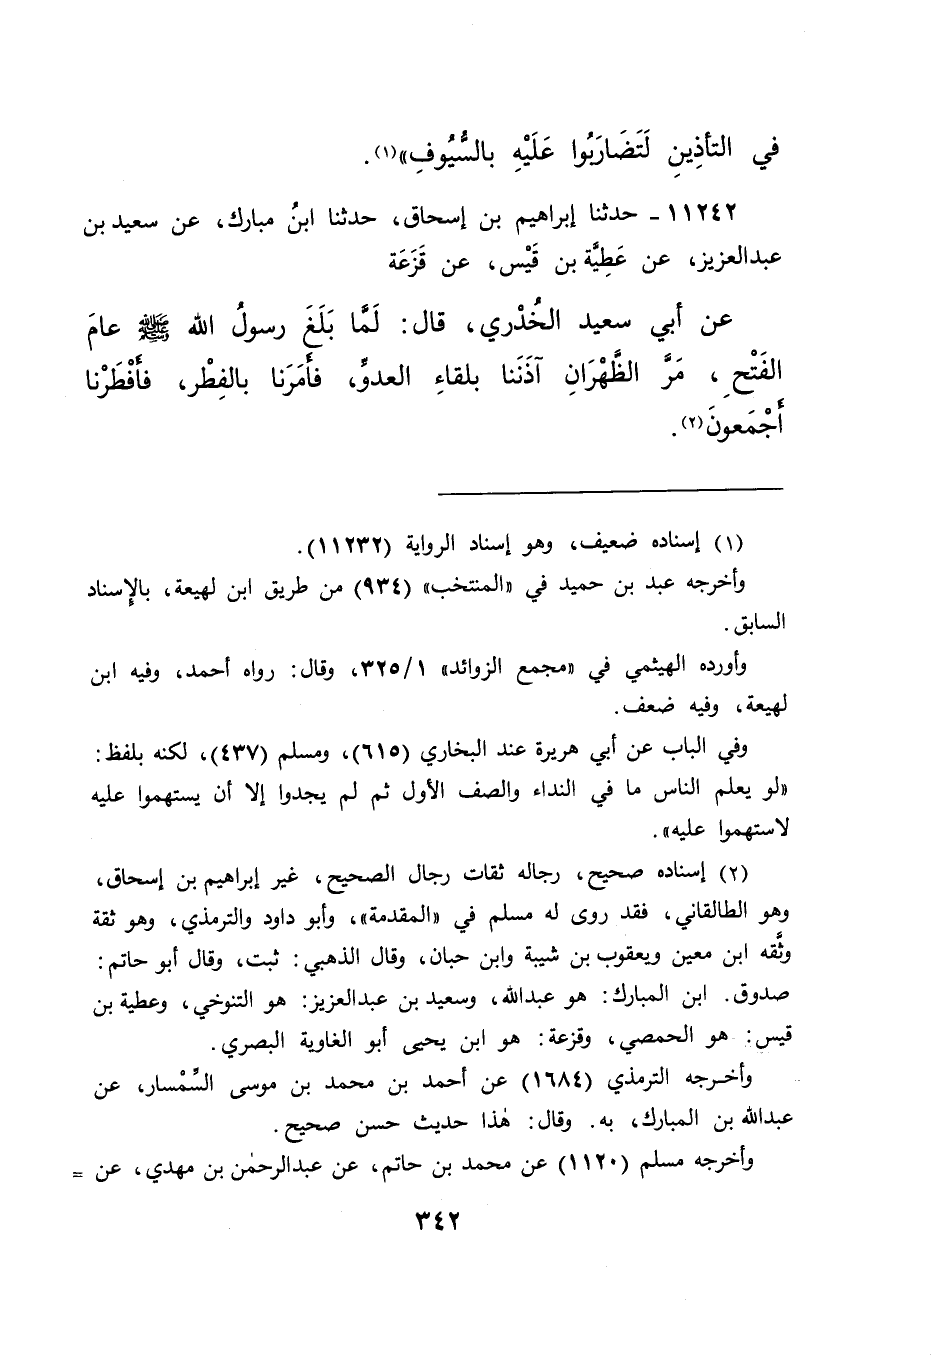 في التأذِينِ لَتَضَارَبُوا عَلَيْهِ بالسُّيُوفِ»(١).
١١٢٤٢ ـ حدثنا إبراهيم بن إسحاق، حدثنا ابنُ مبارك، عن سعيد بن
عبدالعزيز، عن عَطِيَّة بن قَيْس، عن قَزَعَة
عن أبي سعيد الخُدْري، قال: لَمَّا بَلَغَ رسولُ الله ﷺ عامَ
الفَتْحِ، مَرَّ الظَّهْرَانِ آذَنَنا بلقاءِ العدوِّ، فأَمَرَنا بالفِطْر، فأَفْطَرْنا
أَجْمَعونَ(٢).
(١) إسناده ضعيف، وهو إسناد الرواية (١١٢٣٢).
وأخرجه عبد بن حميد في «المنتخب» (٩٣٤) من طريق ابن لهيعة، بالإسناد
السابق.
وأورده الهيثمي في «مجمع الزوائد» ٣٢٥/١، وقال: رواه أحمد، وفيه ابن
لهيعة، وفيه ضعف.
وفي الباب عن أبي هريرة عند البخاري (٦١٥)، ومسلم (٤٣٧)، لكنه بلفظ:
«لو يعلم الناس ما في النداء والصف الأول ثم لم يجدوا إلا أن يستهموا عليه
لاستهموا عليه».
(٢) إسناده صحيح، رجاله ثقات رجال الصحيح، غير إبراهيم بن إسحاق،
وهو الطالقاني، فقد روى له مسلم في «المقدمة»، وأبو داود والترمذي، وهو ثقة
وثَّقه ابن معين ويعقوب بن شيبة وابن حبان، وقال الذهبي: ثبت، وقال أبو حاتم:
صدوق. ابن المبارك: هو عبدالله، وسعيد بن عبدالعزيز: هو التنوخي، وعطية بن
قيس: هو الحمصي، وقزعة: هو ابن يحيى أبو الغاوية البصري.
وأخرجه الترمذي (١٦٨٤) عن أحمد بن محمد بن موسى السِّمْسار، عن
عبدالله بن المبارك، به. وقال: هٰذا حديث حسن صحيح.
وأخرجه مسلم (١١٢٠) عن محمد بن حاتم، عن عبدالرحمٰن بن مهدي، عن =
٣٤٢